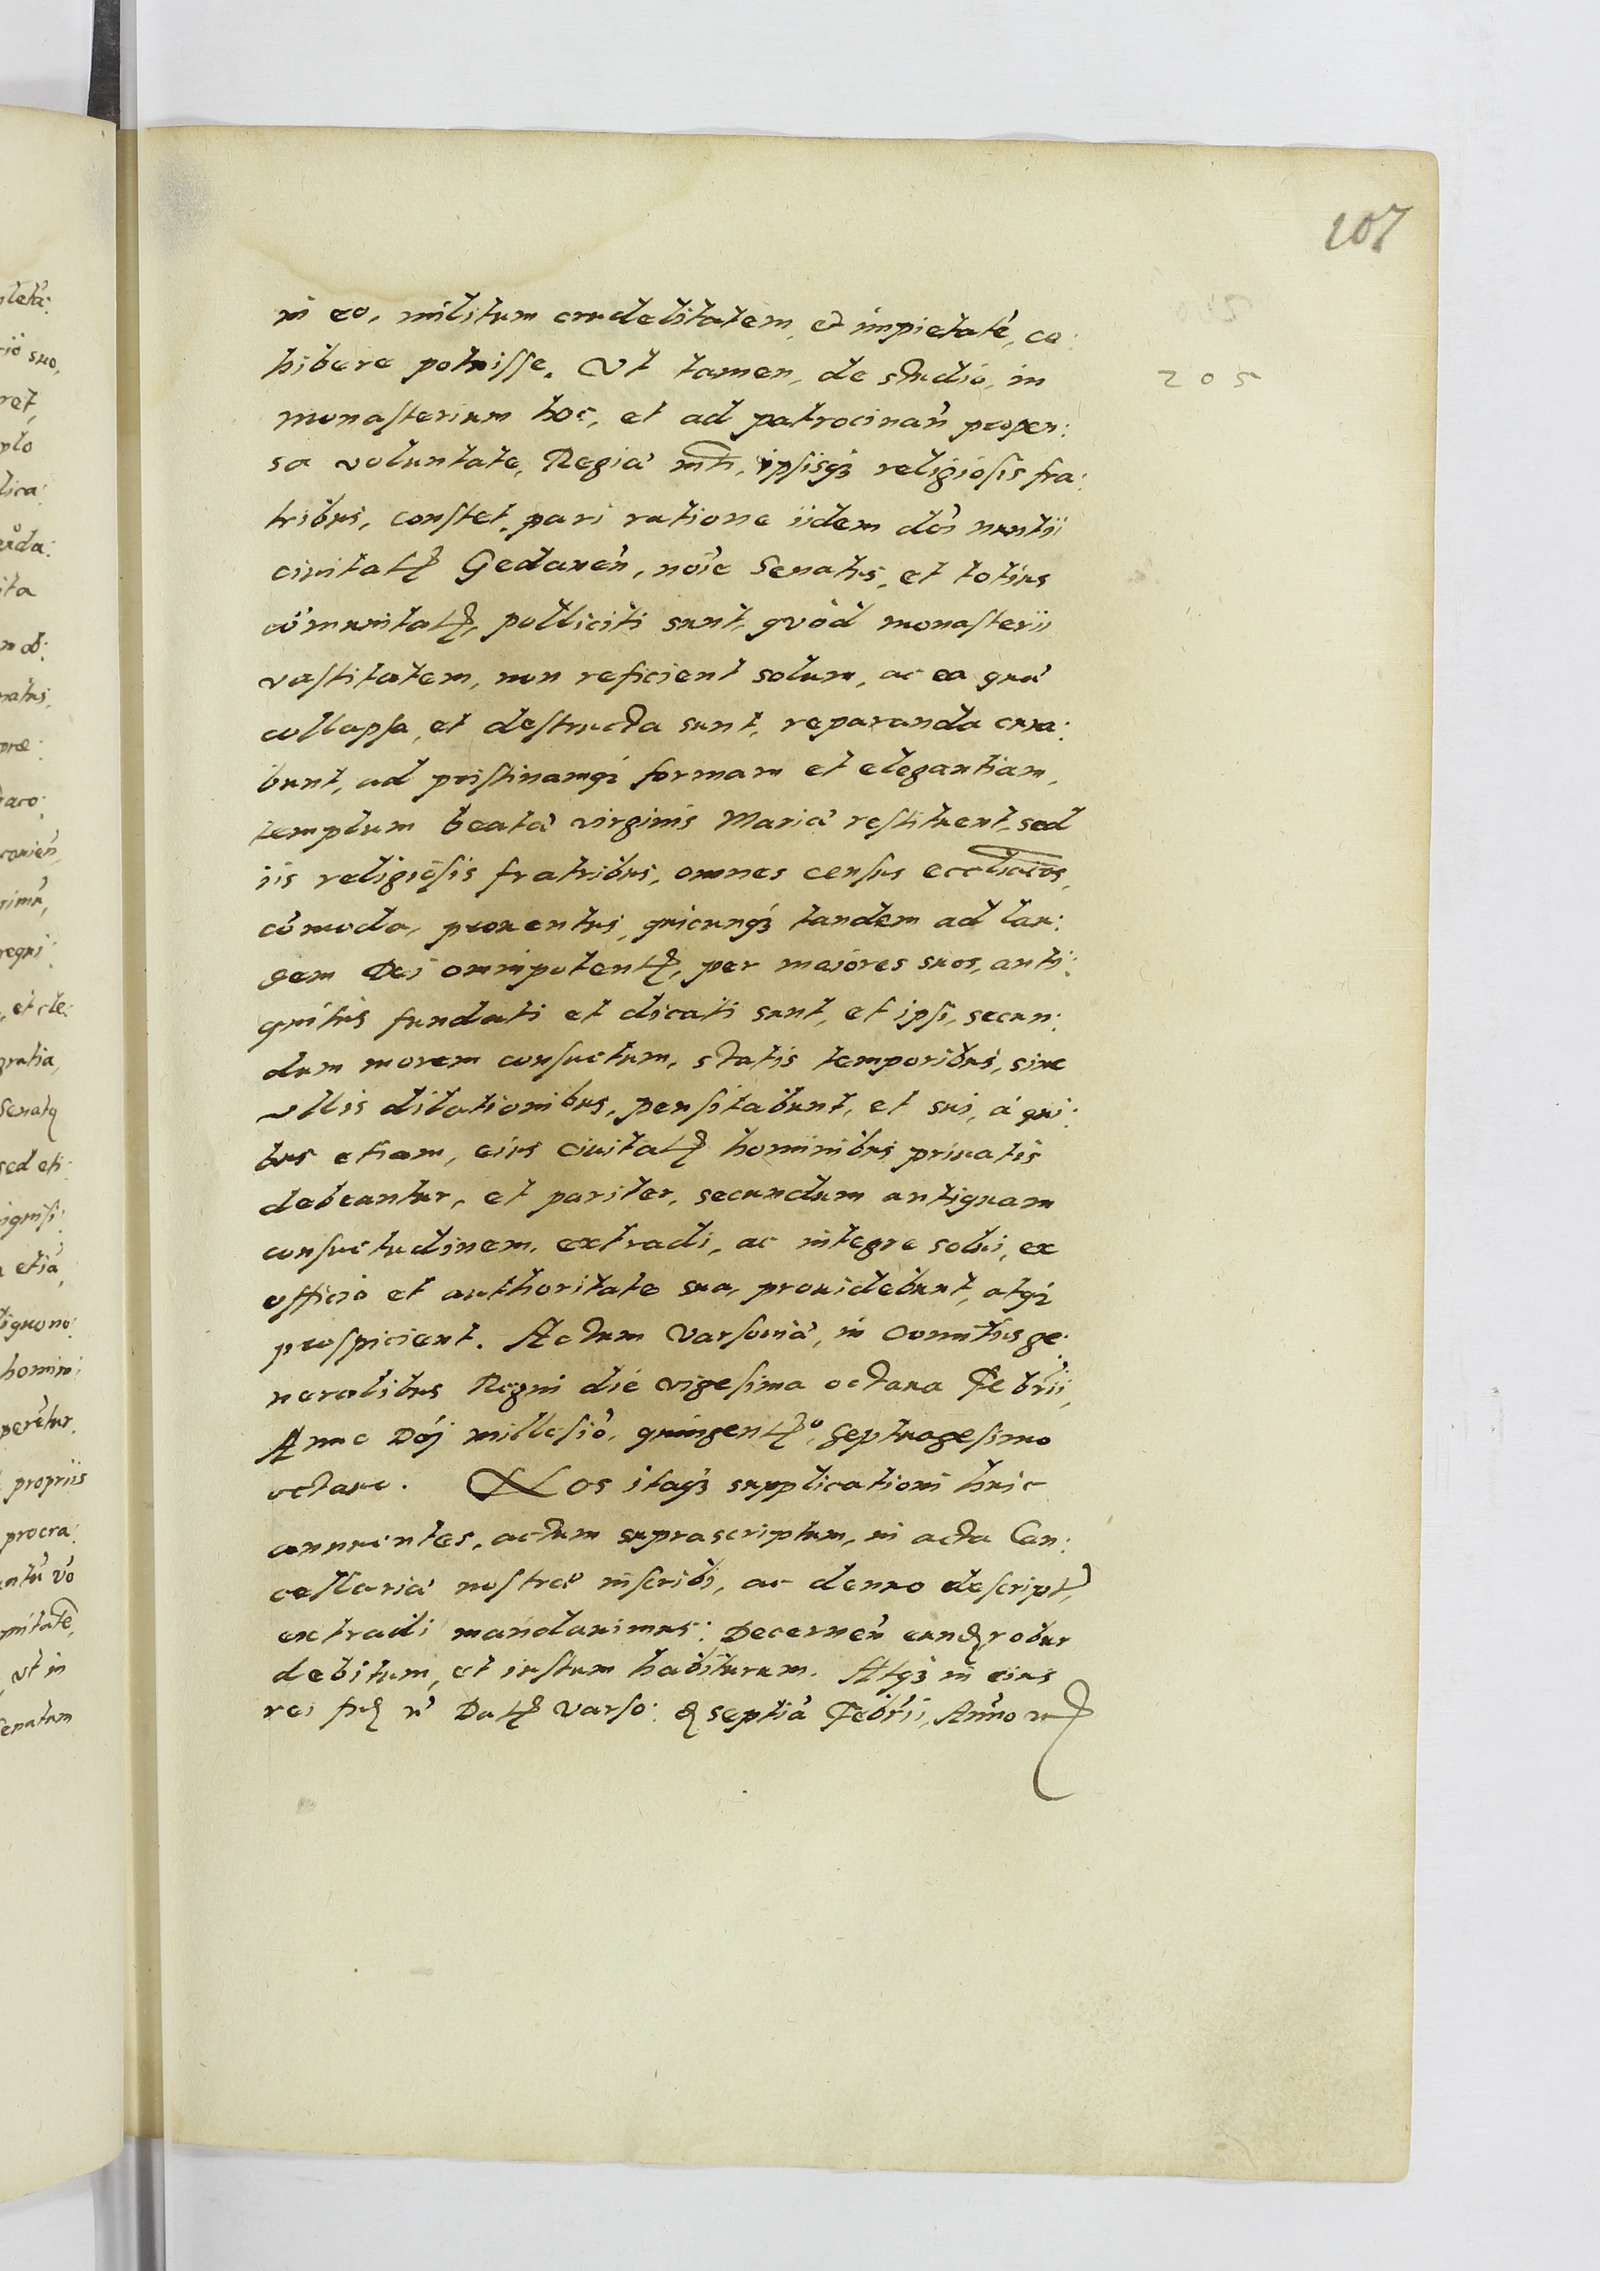 107
205
in eo, militum crudelitatem, et impietatē, co:
hibere potuisse. Ut tamen, de studio, in
monasterium hoc, et ad patrocinan̄ propen:
sa voluntate, Regiæ mti, ipsisqꝫ religiosis fra:
tribus, constet, pari ratione iidem doi nuntii
civitatꝭ Gedanen̄, nōie Senatus, et totius
cōmunitatꝭ, polliciti sunt, quòd monasterii
vastitatem, non reficient solum, ac ea quæ
collapsa, et destructa sunt, reparanda cura:
bunt, ad pristinamqꝫ formam et elegantiam,
templum beatæ virginis Mariæ restituent, sed
iis religiosis fratribus, omnes census eccliāticos,
cōmoda, prouentus, quicunqꝫ tandem ad lau:
dem Dei omnipotentꝭ, per maiores suos, anti:
quitus fundati et dicati sunt, et ipsi, secun:
dum morem consuetum, statis temporibus, sine
ullis dilationibus, pensitabunt, et sui, à qui:
bus etiam, eius ciuitatꝭ hominibus priuatis
debeantur, et pariter, secundum antiquam
consuetudinem, extradi, ac integre solui, ex
officio et authoritate sua, prouidebunt, atqꝫ
prospicient. Actum Varsouiæ, in Conuentus ge:
neralibus Regni die vigesima octaua Febrii,
Anno Doj millesiō, quingentꝭº, septuagesimo
octauo. Nos itaqꝫ supplicationi huic
annuentes, actum suprascriptum, in acta Can:
cellariæ nostræ inscribi, ac denuo descriptꝭ,
extradi mandauimus: Decernen̄ eundꝭ robur
debitum, et iustum habiturum. Atqꝫ in eius
rei fidꝭ Datꝭ Varso: septiā Febrii, Anno